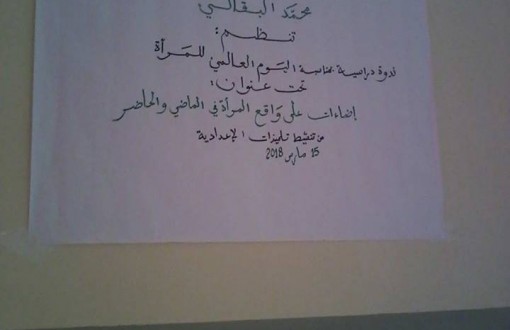 محمد البقالي
تنظم:
ندوة دراسية بمناسبة اليوم العالمي للمرأة
تحت عنوان:
إضاءات على واقع المرأة في الماضي والحاضر
من تنشيط تلميذات الإعدادية
15 مارس 2018